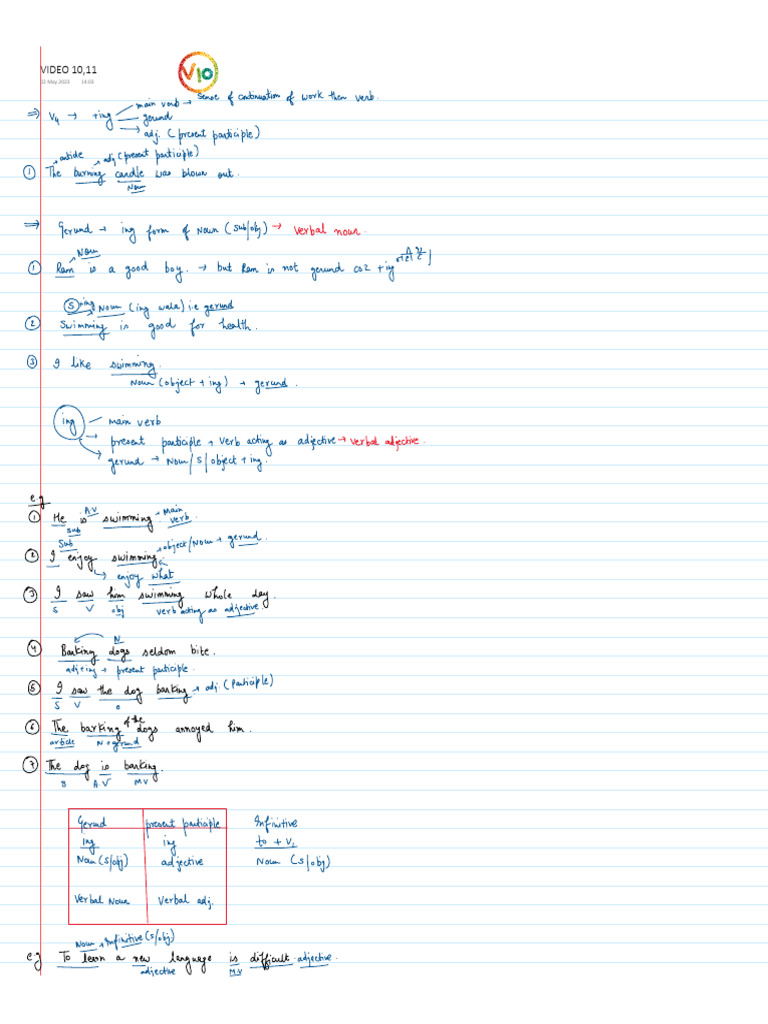 VIDEO 10,11
V10
12 May 2023 14:03
main verb → Sense of continuation of work then verb.
⇒ V4 → +ing gerund
adj. (present participle)
article adj (present participle)
① The burning candle was blown out.
Noun
⇒ Gerund → ing form of Noun (Sub/obj) → Verbal noun.
Noun
① Ram is a good boy. → but Ram is not gerund coz +ing
S +ing Noun (ing wala) i.e gerund
② Swimming is good for health.
③ I like swimming.
Noun (object + ing) → gerund.
ing main verb
→ present participle → verb acting as adjective → verbal adjective.
gerund → Noun/S/object +ing.
e.g
A.V Main
① He is swimming verb.
Sub
Sub object/Noun → gerund.
② I enjoy swimming
↳ enjoy what
③ I saw him swimming whole day.
S V obj verb acting as adjective.
N
④ Barking dogs seldom bite.
adj+ing → present participle.
⑤ I saw the dog barking → adj. (Participle)
S V o
of the
⑥ The barking dogs annoyed him.
article N → gerund
⑦ The dog is barking.
S A.V M.V
Gerund present participle Infinitive
ing ing to + V1
Noun (S/obj) adjective Noun (S/obj)
Verbal Noun Verbal adj.
Noun → Infinitive (S/obj)
e.g To learn a new language is difficult adjective.
adjective M.V